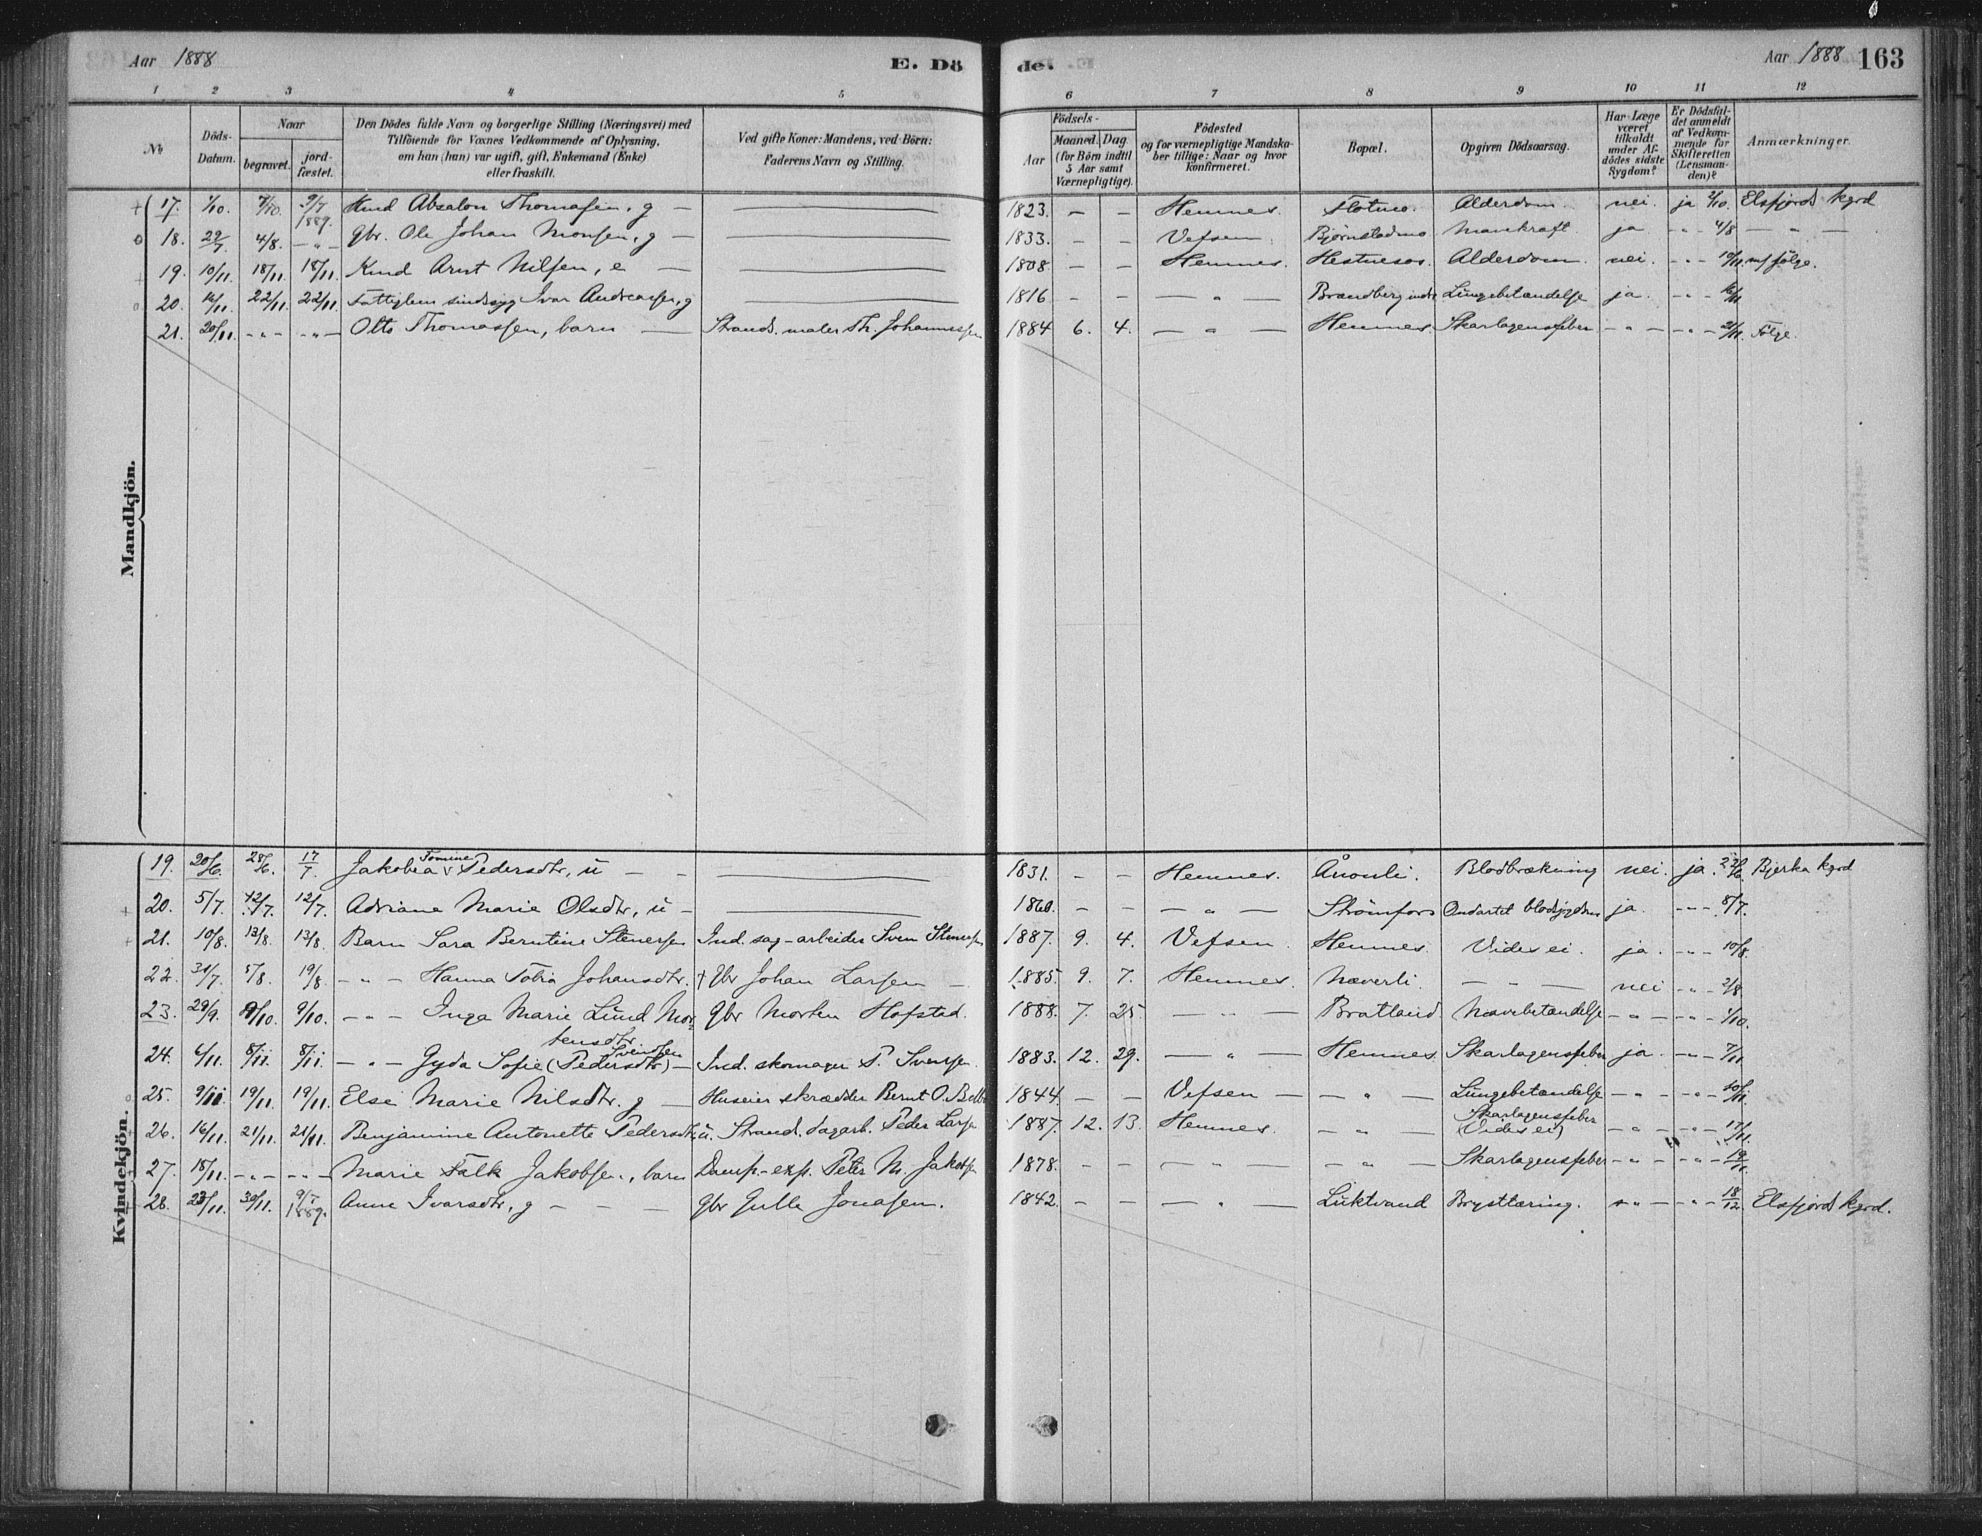 Aar 1888 E. Dö de. Aar 1888 163
1 2 3 4 5 6 7 8 9 10 11 12
No Döds-Datum. Naar begravet. jord-fæstet. Den Dödes fulde Navn og borgerlige Stilling (Næringsvei) med Tilföiende for Voxnes Vedkommende af Oplysning, om han (hun) var ugift, gift, Enkemand (Enke) eller fraskilt. Ved gifte Koner: Mandens, ved Börn: Faderens Navn og Stilling. Födsels- Aar Maaned. Dag (for Börn indtil 5 Aar samt Værnepligtige). Födested og for værnepligtige Mandska-ber tillige: Naar og hvor konfirmeret. Bopæl. Opgiven Dödsaarsag. Har Læge været tilkaldt under Af-dödes sidste Sygdom? Er Dödsfal-det anmeldt af Vedkom-mende for Skifteretten (Lensman-den)? Anmærkninger.
Mandkjön.
17. 1/10. 7/10. 9/7 1889. Absalon Thomasen, g — 1823. — — Hemnes. Alderdom. nei. ja 2/10. Elsfjords kgrd
18. 29/7 4/8. — " — Gbr. Ole Johan Monsen, g — 1833. — — Vefsen. Bjørnstadmo Mavekræft ja — " — 4/8 — " —
19. 10/11. 18/11. 18/11. Arnt Nilsen, e — 1808. — — Hemnes. Alderdom. nei. — " — m/ følge.
20. 14/11. 22/11. 22/11. Fattiglem sindssyg Ivar Andreassen, g 1816 — — — " — Brandberg indre Lungebetændelse ja. — " —
21. 20/11. — " — — " — Otto Thomassen, barn — Strands. maler Th. Johannessen 1884 6. 4. — " — Hemnes. Skarlagensfeber — " — — " — 21/11. Følge.
Kvindekjön.
19. 20/6. 28/6. 17/7. Jakobea Tomine Pedersdtr, u — — 1831. — — Hemnes. Ånonli. Blodbrækning nei. ja. Bjerka kgrd
20. 5/7. 12/7. 12/7. Adriane Marie Olsdtr, u — 1860. — — — " — Strømfors Ondartet blodsygdom ja. — " — 8/7.
21. 10/8. 13/8. 13/8. Barn Sara Berntine Stenersen Ind. sag-arbeider Sven Stenersen 1887. 9. 4. Vefsen. Hemnes. Vides ei. ja. — " — 10/8.
22. 31/7. 5/8. 19/8. — " — Hanna Tobia Johansdtr. + Gbr Johan Larsen — 1885. 9. 7. Hemnes. Næverli. — " — nei — " — 2/8.
23. 29/9. 9/10. 9/10. — " — Inga Marie Lund Mor-tensdtr Gbr Morten Hofstad. 1888. 7. 25 — " — Bratland Mavebetændelse — " — — " — 1/10.
24. 6/11. 8/11. 8/11. — " — Gyda Sofie (Pedersdtr) Svendsen — Ind. skomager P. Svensen. 1883. 12. 29. — " — Hemnes. Skarlagensfeber ja. — " — 7/11
25. 9/11. 19/11. 19/11. Else Marie Nilsdtr. g — Huseier skrædder Bernt O. 1844. — — Vefsen — — " — Lungebetændelse — " — — " —
26. 16/11. 21/11. 21/11. Benjamine Antonette Pedersdtr, u. Strands. dagarb. Peder Larsen 1887. 12. 13. Hemnes. — " — Skarlagensfeber (Vides ei) — " — — " — 17/11.
27. 18/11. — " — — " — Marie Falk Jakobsen, barn Damp.-exp. Peter M. Jakobsen 1878. — — — " — — " — Skarlagensfeber — " — — " — 19/11.
28. 23/11. 30/11. 9/7 1889. Anne Ivarsdtr, g — — — Gbr Gulle Jonasen. 1842. — — — " — Luktvand Brysttæring. — " — — " — 18/12 Elsfjords kgrd.